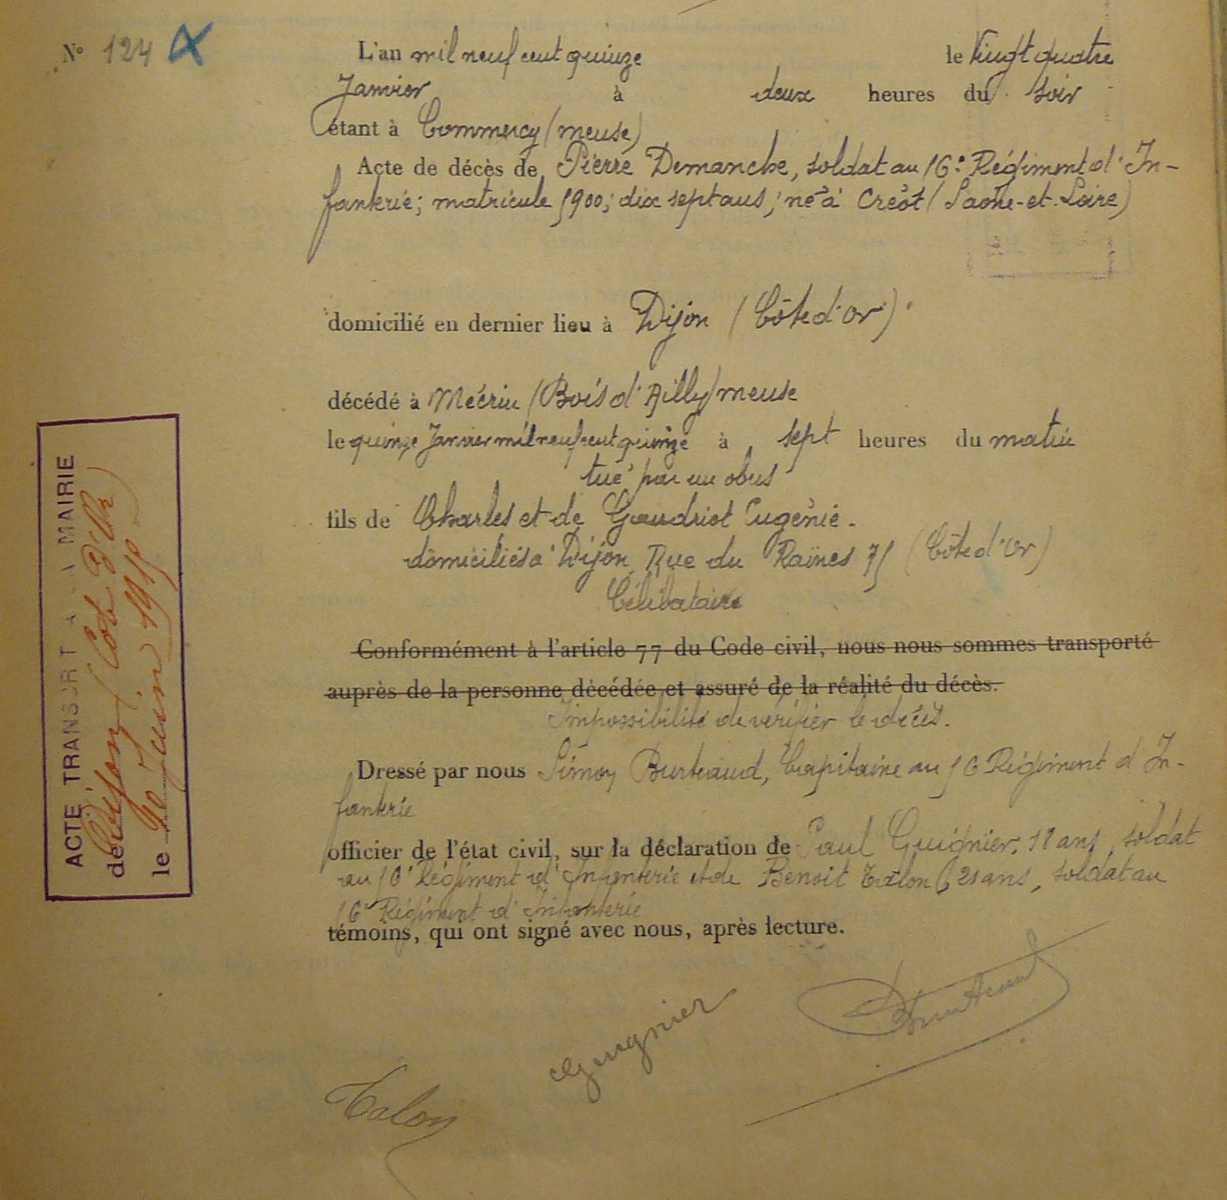 N° 124
L'an mil neuf cent quinze le Vingt quatre
Janvier à deux heures du soir
étant à Commercy (meuse)
Acte de décès de Pierre Demanche, soldat au 16e Régiment d'In-
fanterie; matricule 1900; dix sept ans; né à Créot (Saône-et-Loire)
domicilié en dernier lieu à Dijon (Côte d'Or)
décédé à Mécrin (Bois d'Ailly) meuse
le quinze Janvier mil neuf cent quinze à sept heures du matin
tué par un obus
fils de Charles et de Gaudriot Eugénie.
domiciliés à Dijon, Rue du Raines 71 (Côte d'Or)
Célibataire
Conformément à l'article 77 du Code civil, nous nous sommes transporté
auprès de la personne décédée et assuré de la réalité du décès.
Impossibilité de vérifier le décès.
Dressé par nous Simon Capitaine au 16 Régiment d'In-
fanterie
officier de l'état civil, sur la déclaration de Paul Guignier, ans, soldat
au 16e Régiment d'Infanterie et de Benoit Talon, 21 ans, soldat au
16e Régiment d'Infanterie
témoins, qui ont signé avec nous, après lecture.
Guignier
Talon
ACTE TRANSCRIT A LA MAIRIE
de Dijon (Côte d'Or)
le Juin 1915